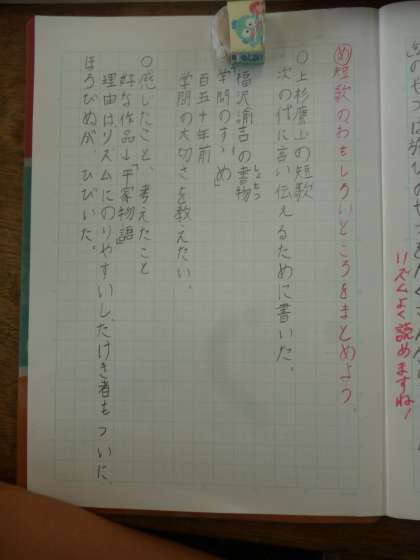 リズムよく読めますね!
め 短歌のおもしろいところをまとめよう。
○上杉鷹山の短歌
次の代に言い伝えるために書いた。
福沢諭吉の書物
しょもつ
「学問のすゝめ」
百五十年前
学問の大切さを教えたい。
○感じたこと、考えたこと
好な作品→「平家物語」
理由はリズムにのりやすいし、たけき者もついに、
ほろびぬが、ひびいた。